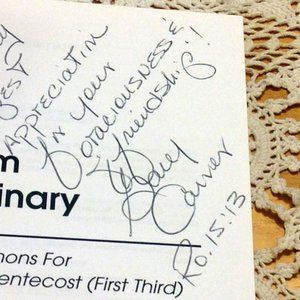 Appreciation
for your
Graciousness &
Friendship!!
Gary
Carver
Ro. 15.13
m
inary
mons For
entecost (First Third)